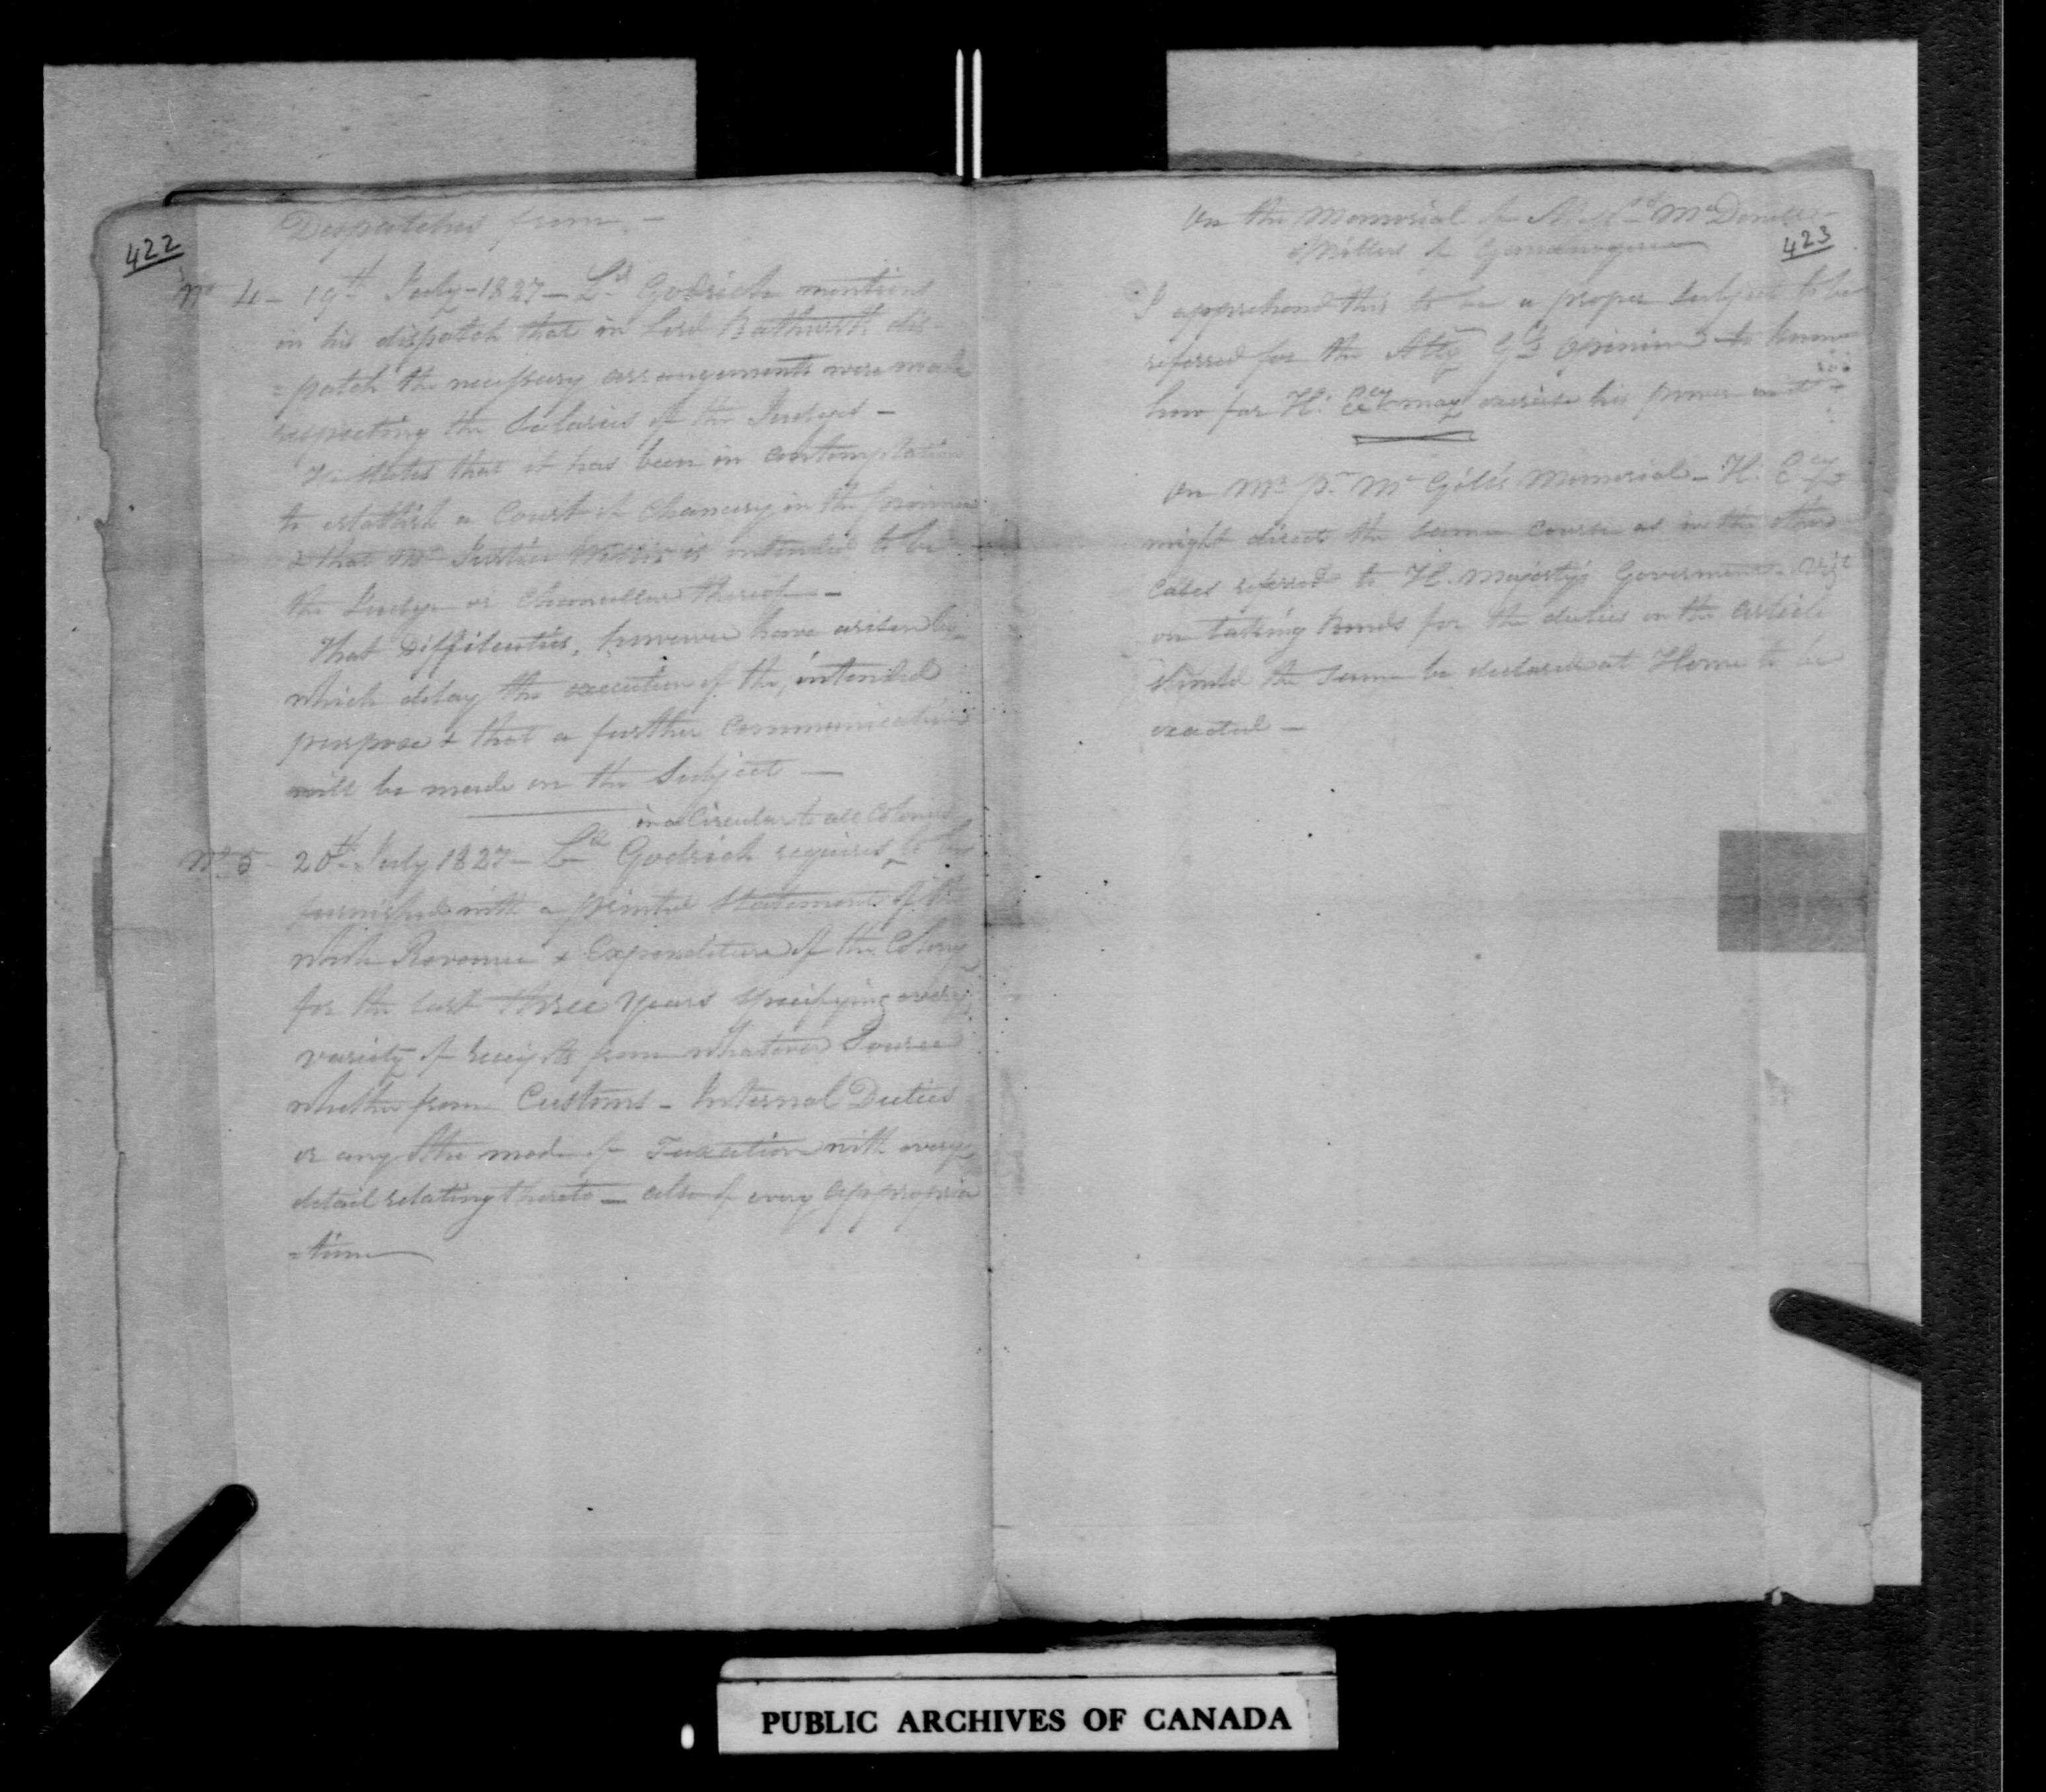 422
Despatches from —
No 4 — 19th July - 1827 — Ld Godrich mentions
in his dispatch that in Lord Bathurst's dis-
=patch the necessary arrangements were made
respecting the Salaries of the Judges —
He states that it has been in contemplation
to establish a Court of Chancery in the province
& that Mr Justice Willis is intended to be
the Judge or Chancellor thereof —
That Difficulties, however have arisen
which delay the execution of the intended
purpose & that a further Communication
will be made on the Subject —
in a Circular to all Colonies
No 5 — 20th July 1827 — Ld Godrich requires to be
furnished with a printed Statement of the
whole Revenue & Expenditure of the Colony
for the last three Years specifying every
variety of receipts from whatever Source
whether from Customs — Internal Duties
or any other mode of Taxation with every
detail relating thereto — also of every appropria
=tion
423
On the Memorial of McDonell
Millers of Gananoque
I apprehend this to be a proper Subject to be
referred for the Atty Gls Opinion to know
how far H: Ecy may exercise his power in it
On Mr Mr Gill's Memorial — H: Ecy
might direct the same course as in the other
Cases referred to H. Majesty's Government vizt
on taking bonds for the duties on the article
should the same be declared at Home to be
exacted —
PUBLIC ARCHIVES OF CANADA